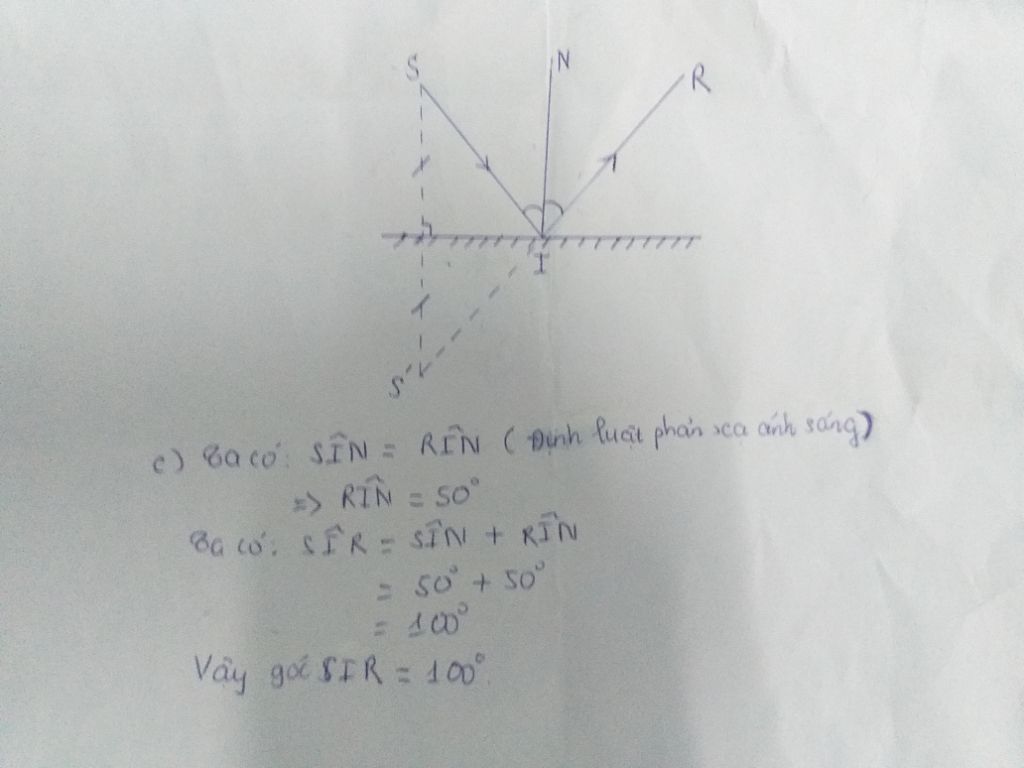 S
N
R
I
S'
c) Ta có: SÎN = RÎN (Định luật phản xạ ánh sáng)
=> RÎN = 50°
Ta có: SÎR = SÎN + RÎN
= 50° + 50°
= 100°
Vậy góc SIR = 100°.